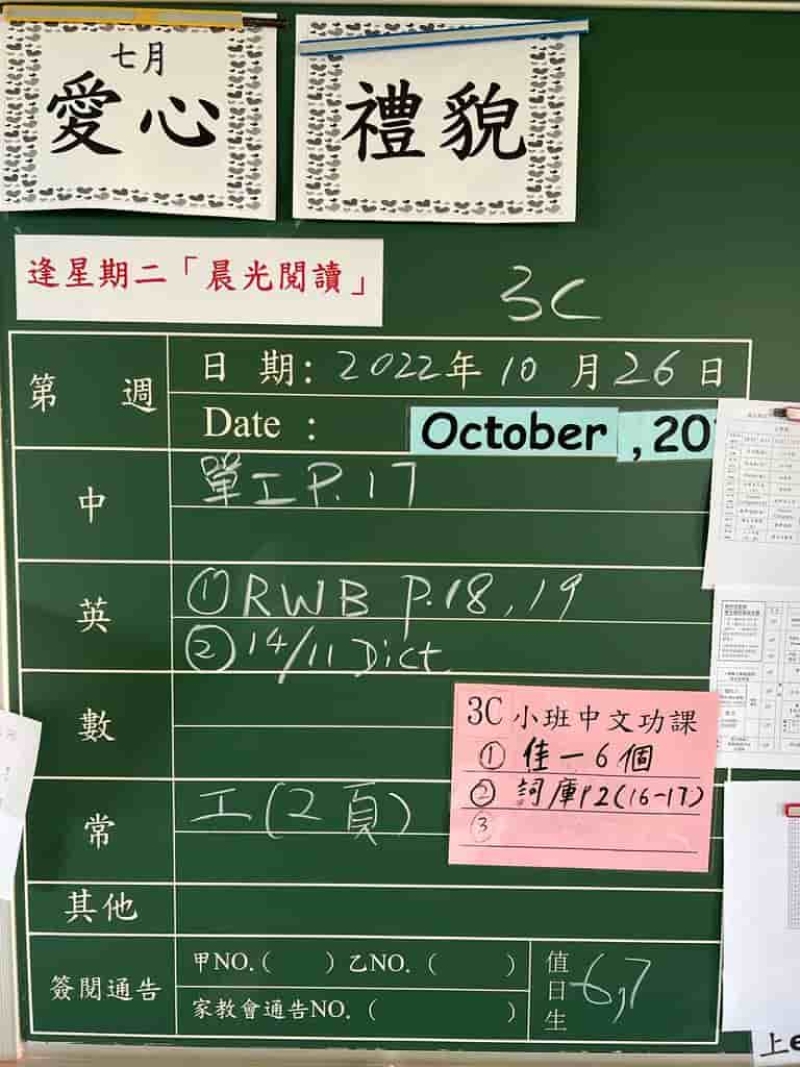 七月
愛心
禮貌
逢星期二「晨光閱讀」
3C
第 週
日 期: 2022年 10 月 26 日
Date :
October , 20
中
單工 P.17
英
① RWB P.18, 19
② 14/11 Dict
數
3C 小班中文功課
① 佳一 6 個
② 詞庫 P2(16-17)
③
常
工(2頁)
其他
簽閱通告
甲NO.( ) 乙NO. ( )
家教會通告NO. ( )
值日生
6,7
上e